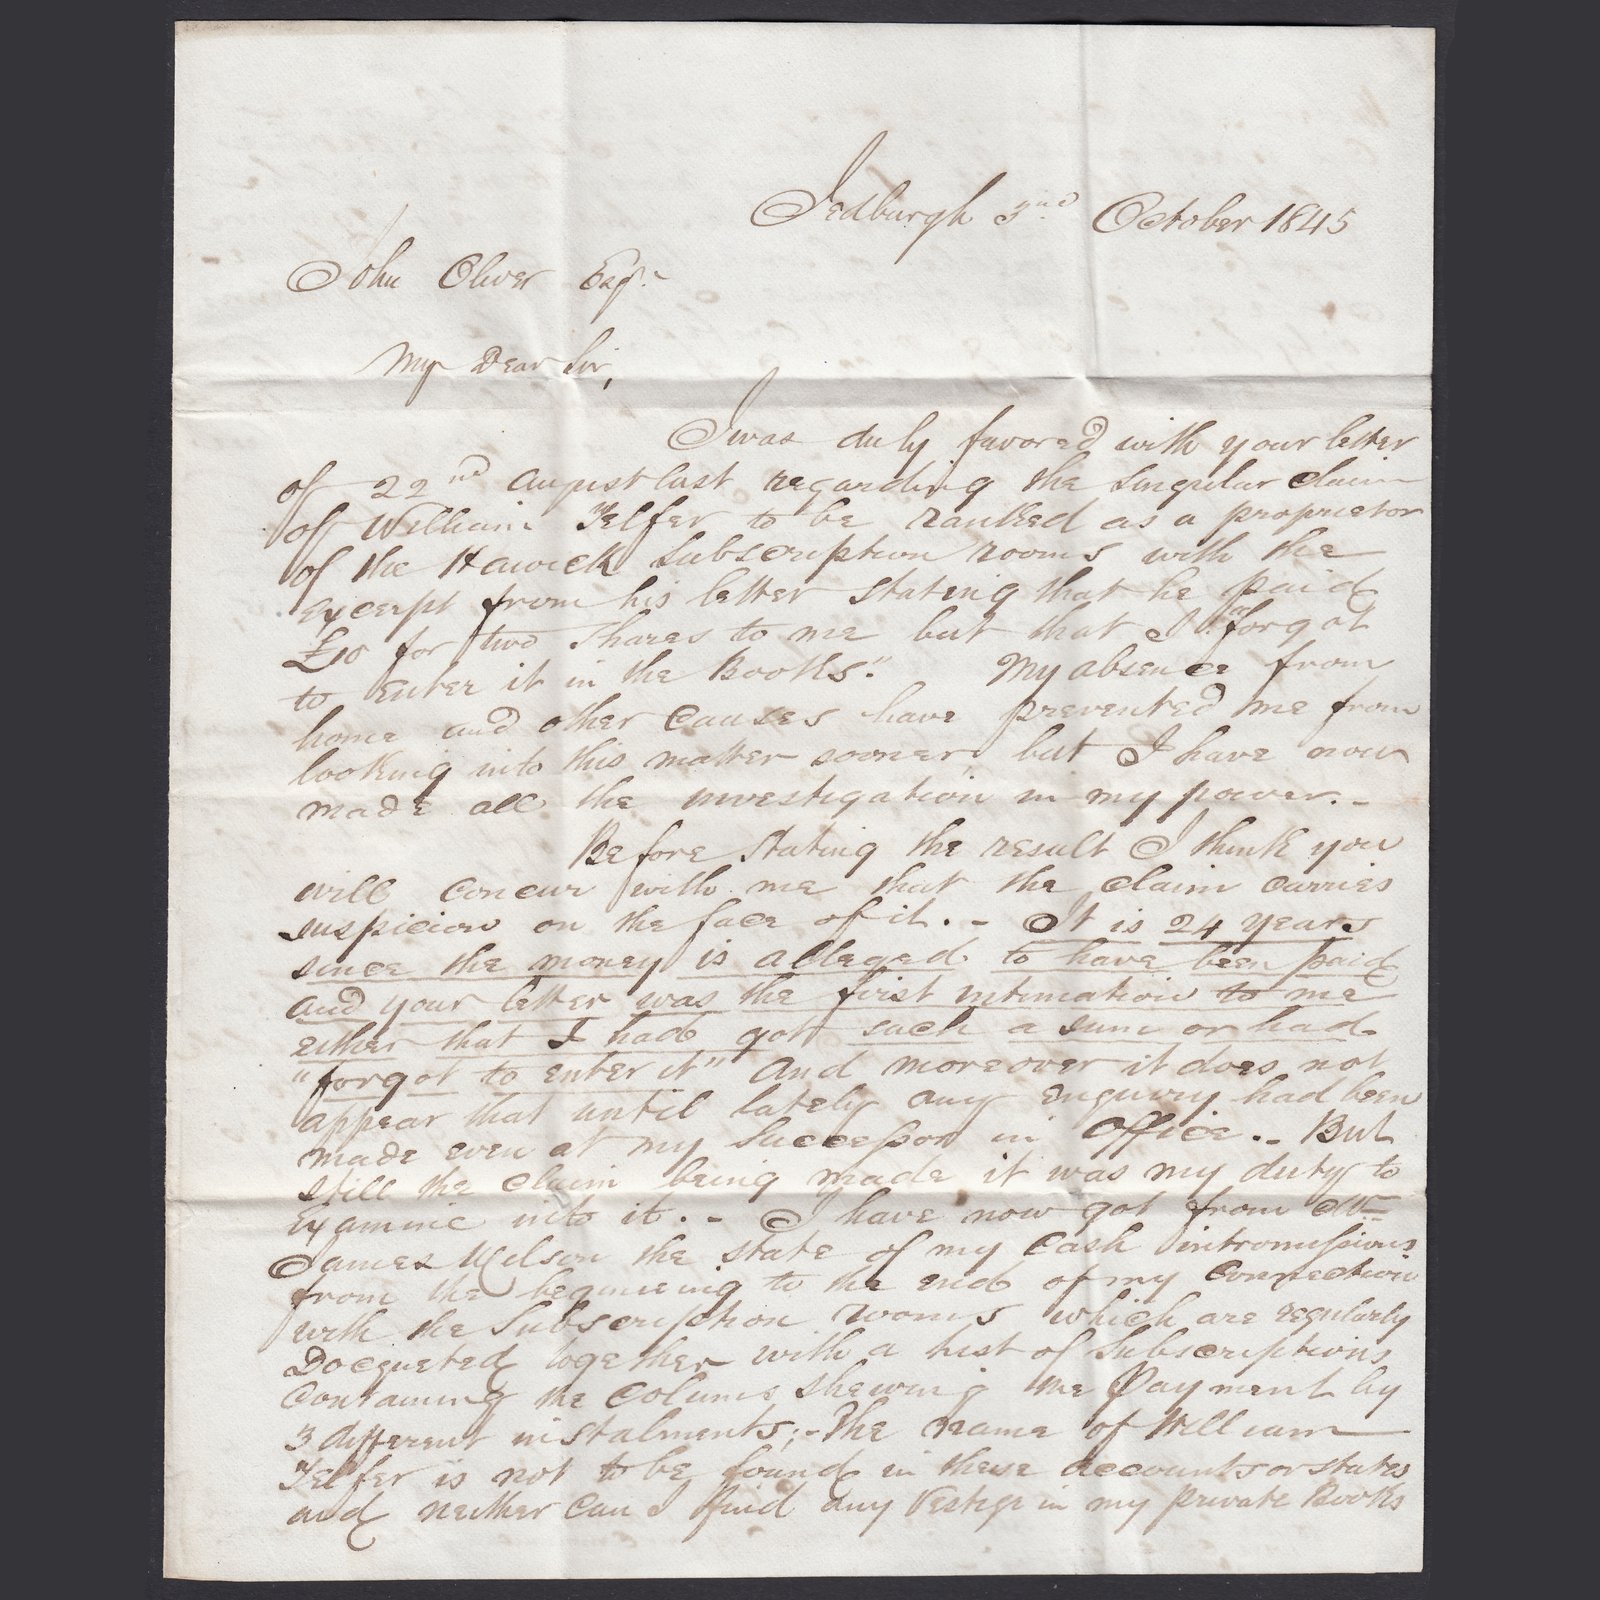 Jedburgh 3rd October 1845
John Oliver Esqr.
My Dear Sir,
I was duly favored with your letter
of 22nd August last regarding the singular claim
of William Telfer to be ranked as a proprietor
of the Hawick Subscription rooms with the
Excerpt from his letter stating that he paid
£10 for two shares to me but that I "forgot
to enter it in the Books." My absence from
home and other causes have prevented me from
looking into this matter sooner, but I have now
made all the investigation in my power. -
Before stating the result I think you
will concur with me that the claim carries
suspicion on the face of it. - It is 24 years
since the money is alleged to have been paid
and your letter was the first intimation to me
either that I had got such a sum or had
"forgot to enter it" And moreover it does not
appear that until lately any enquiry had been
made even at my Successor in Office. - But
still the claim being made it was my duty to
Examine into it. - I have now got from Mr
James Wilson the state of my Cash intromissions
from the beginning to the end of my Connection
with the Subscription rooms which are regularly
Docqueted together with a list of Subscriptions
Containing the Columns shewing the Payment by
3 different instalments; - The name of William
Telfer is not to be found in these accounts or states
and neither Can I find any Vestige in my private Books